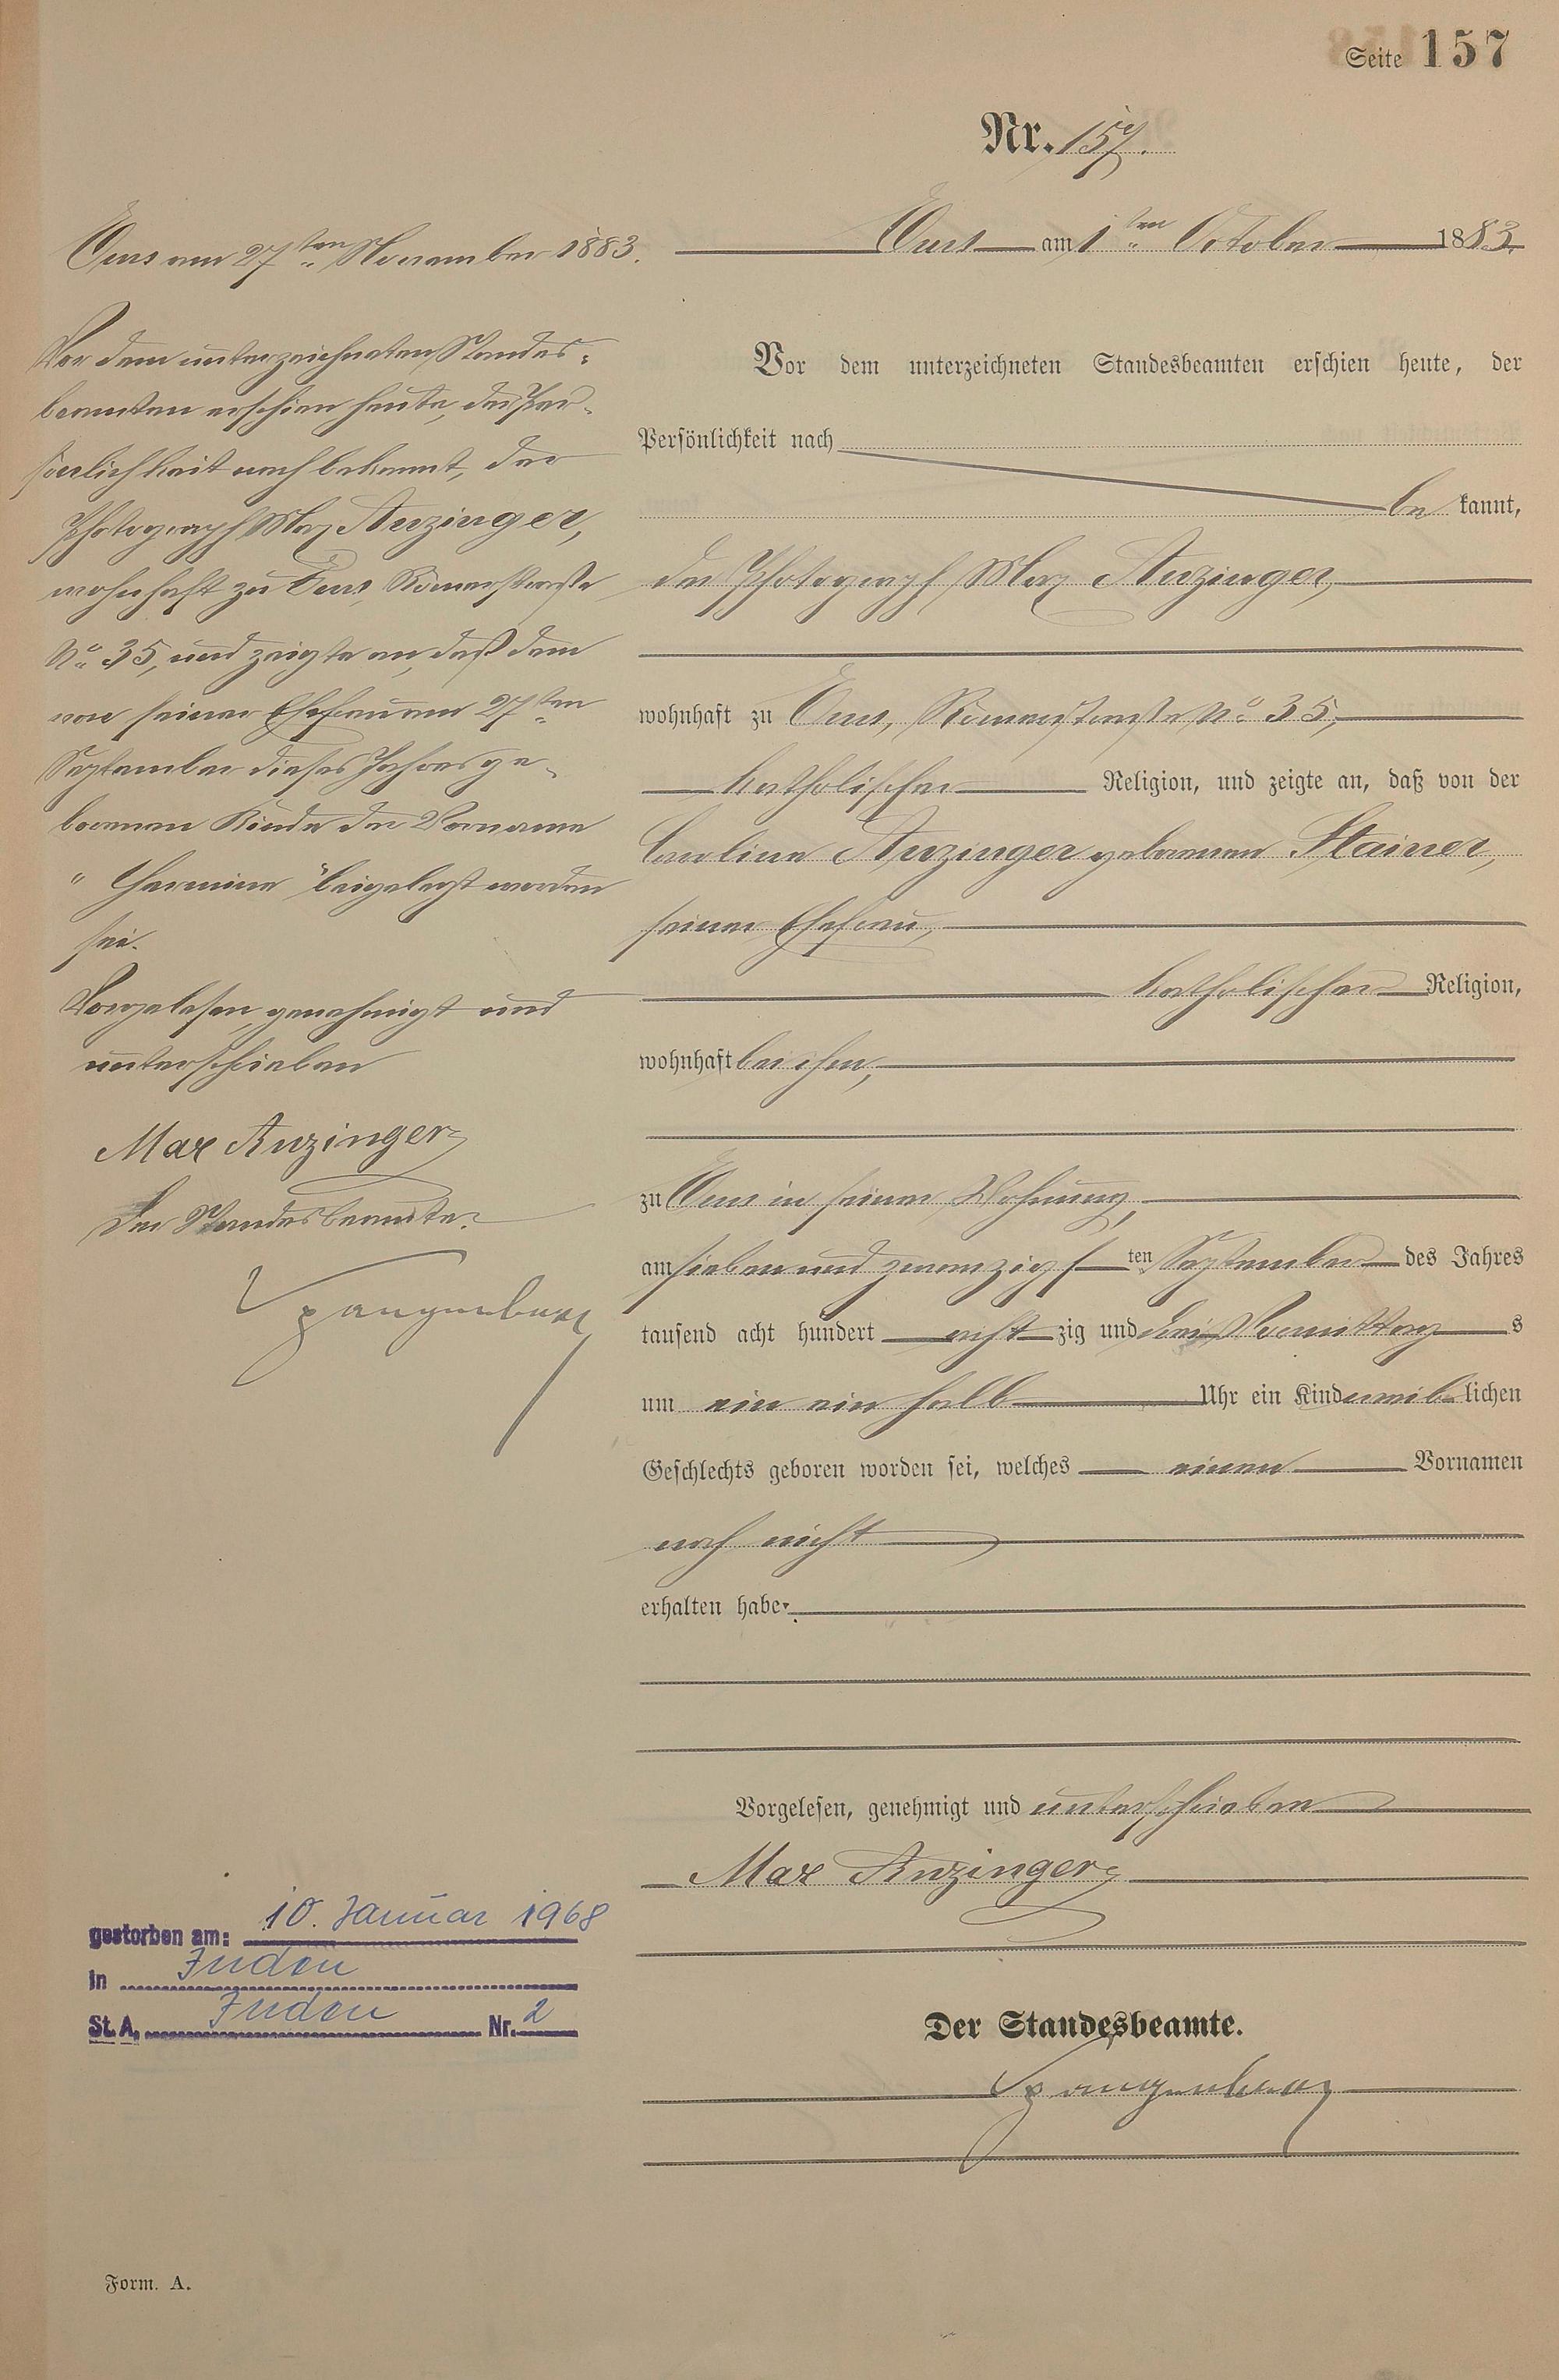 Seite 157
Nr. 157.
Ems am 1ten October 1883.
Vor dem unterzeichneten Standesbeamten erschien heute, der
Persönlichkeit nach
be kannt,
der Photograph Max Anzinger,
wohnhaft zu Ems, Römerstraße No. 35,
katholischer Religion, und zeigte an, daß von der
Caroline Anzinger geborenen Stainer,
seiner Ehefrau,
katholischer Religion,
wohnhaft bei ihm,
zu Ems in seiner Wohnung,
am sieben und zwanzigs ten September des Jahres
tausend acht hundert acht zig und drei Vormittag s
um ein ein halb Uhr ein Kind weib lichen
Geschlechts geboren worden sei, welches einen Vornamen
noch nicht
erhalten habe.
Vorgelesen, genehmigt und unterschrieben
Max Anzinger
Der Standesbeamte.
Spangenberg
Ems am 27ten November 1883.
Vor dem unterzeichneten Standes=
beamten erschien heute, der Per-
sönlichkeit nach bekannt, der
Photograph Max Anzinger,
wohnhaft zu Ems, Römerstraße
No. 35, und zeigte an, daß dem
von seiner Ehefrau am 27ten
September dieses Jahres ge-
borenen Kinde der Vorname
"Hermine" beigelegt worden
sei.
Vorgelesen, genehmigt und
unterschrieben
Max Anzinger
Der Standesbeamte.
Spangenberg
gestorben am: 10. Januar 1968
in Inden
St. A. Inden Nr. 2
Form. A.